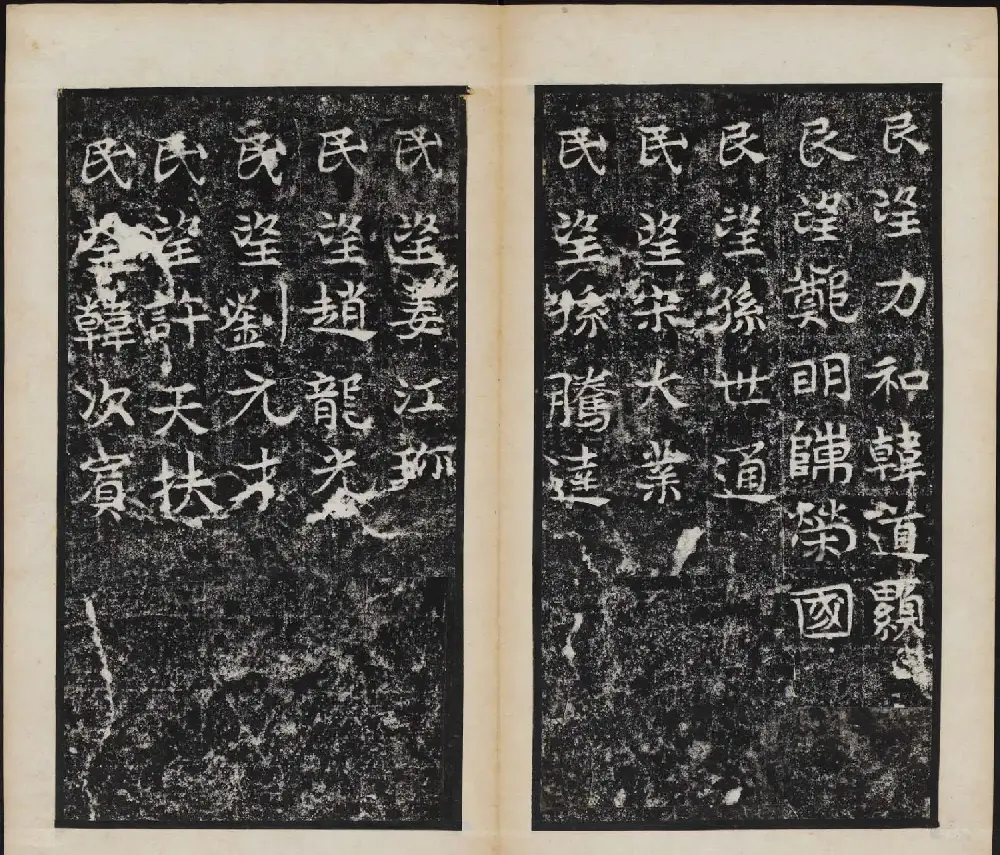 民望力和韓道顯
民望鄭明陳榮國
民望孫世通
民望宋大業
民望孫騰達
民望姜江
民望趙龍光
民望劉元才
民望許天扶
民望韓次賓